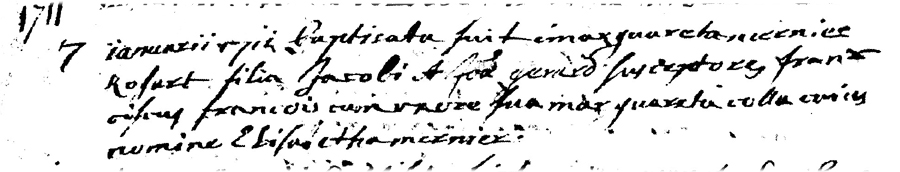 1711
7 ianuarii 1711 baptisata fuit margareta mernier
Rosart filia Jacobi et gerard susceptores fran
ciscus francois cum uxore sua margareta colla cuius
nomine Elisabetha mernier